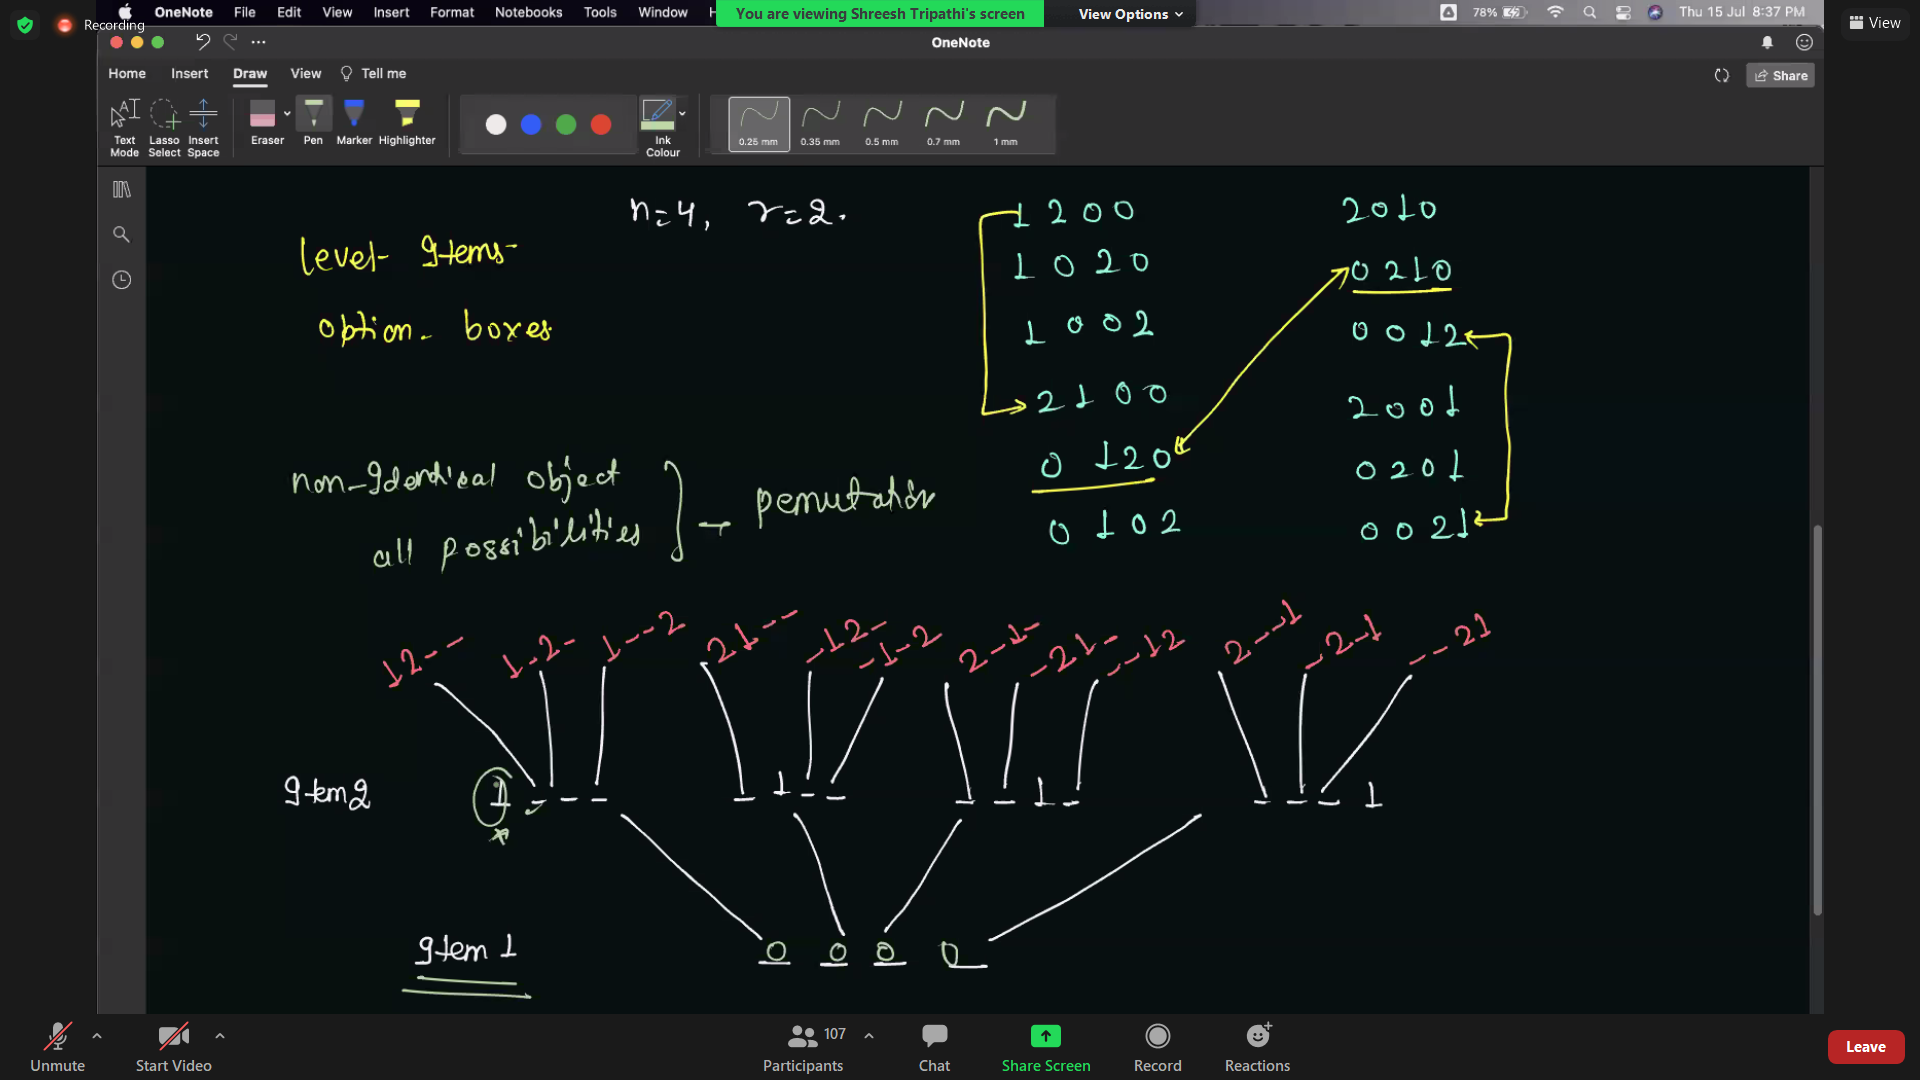 Recording
OneNote File Edit View Insert Format Notebooks Tools Window H
You are viewing Shreesh Tripathi's screen
View Options
78% Thu 15 Jul 8:37 PM
View
OneNote
Home Insert Draw View Tell me
Share
Text Mode
Lasso Select
Insert Space
Eraser
Pen
Marker
Highlighter
Ink Colour
0.25 mm 0.35 mm 0.5 mm 0.7 mm 1 mm
n=4, r=2.
level- Items-
option- boxes
1 2 0 0
1 0 2 0
1 0 0 2
2 1 0 0
0 1 2 0
0 1 0 2
2 0 1 0
0 2 1 0
0 0 1 2
2 0 0 1
0 2 0 1
0 0 2 1
non-Identical object
all possibilities
permutation
12-- 1-2- 1--2 21-- -12- -1-2 2-1- -21- --12 2--1 -2-1 --21
Item2 1 - - - - 1 - - - - 1 - - - - 1
Item 1 0 0 0 0
Unmute
Start Video
107
Participants
Chat
Share Screen
Record
Reactions
Leave